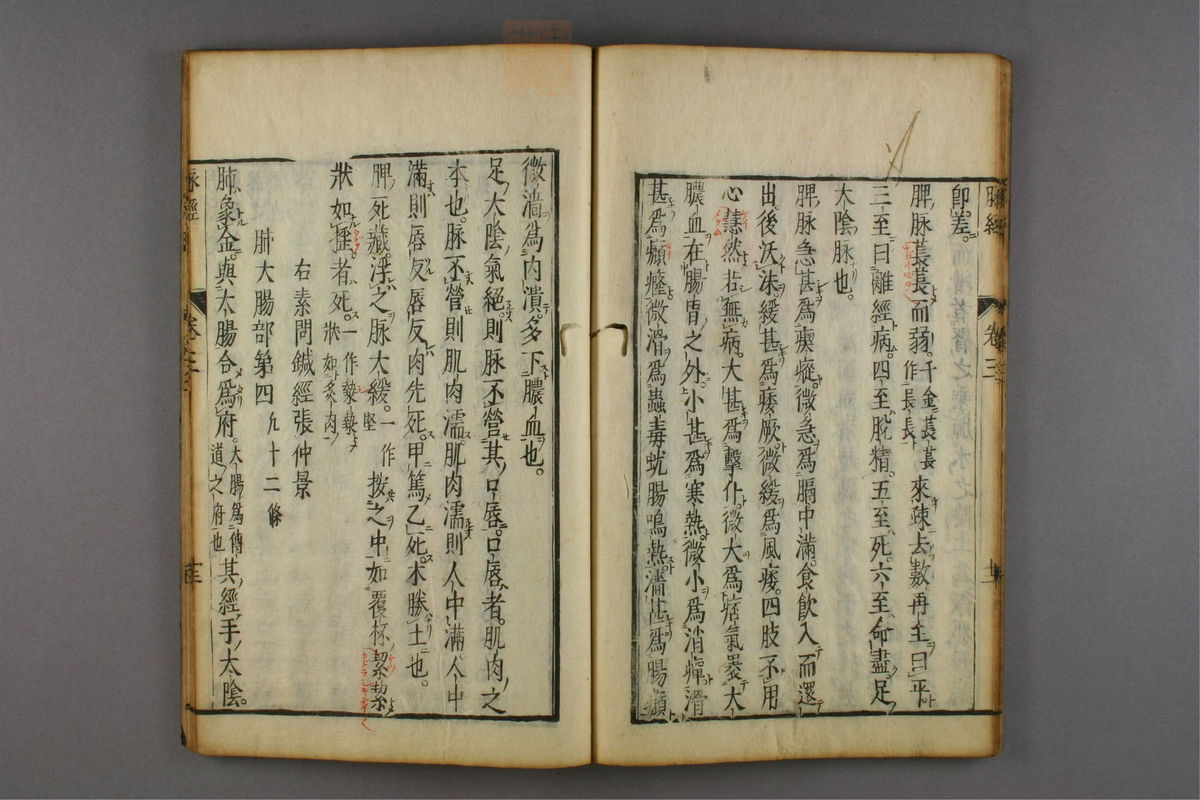 脉經 卷三
卽差。
脾脉萇萇而弱。千金萇萇作長長來疎去數。再至曰平。
三至曰離經病。四至脫精。五至死。六至命盡。足
太陰脉也。
脾脉急甚爲瘈瘲。微急爲膈中滿。食飮入而還
出。後沃沫。緩甚爲痿厥。微緩爲風痿。四肢不用
心慧然若無病。大甚爲擊仆。微大爲痞氣裹大
膿血在腸胃之外。小甚爲寒熱。微小爲消癉。滑
甚爲㿗癃。微滑爲蟲毒蚘腸鳴熱。濇甚爲腸㿗
微濇爲內潰。多下膿血也。
足太陰氣絕。則脉不營其口唇。口唇者。肌肉之
本也。脉不營則肌肉濡。肌肉濡則人中滿。人中
滿則唇反。唇反肉先死。甲篤乙死。木勝土也。
脾死藏。浮之脉大緩。一作堅按之中如覆杯。絜絜
狀如揺者。死。一作漐漐狀如炙肉
右素問鍼經張仲景
肺大腸部第四 九十二條
肺象金。與大腸合爲府。大腸爲傳道之府也其經手太陰。
脉經 卷之三